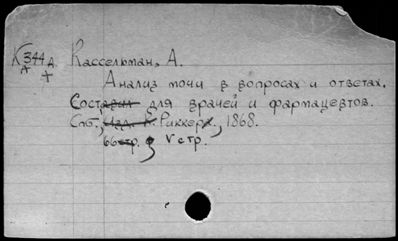 К 344 д. Кассельман, А.
А
+ Анализ мочи в вопросах и ответах.
Составил для врачей и фармацевтов.
Спб., Изд. К. Риккера, 1868.
66 стр. V стр.